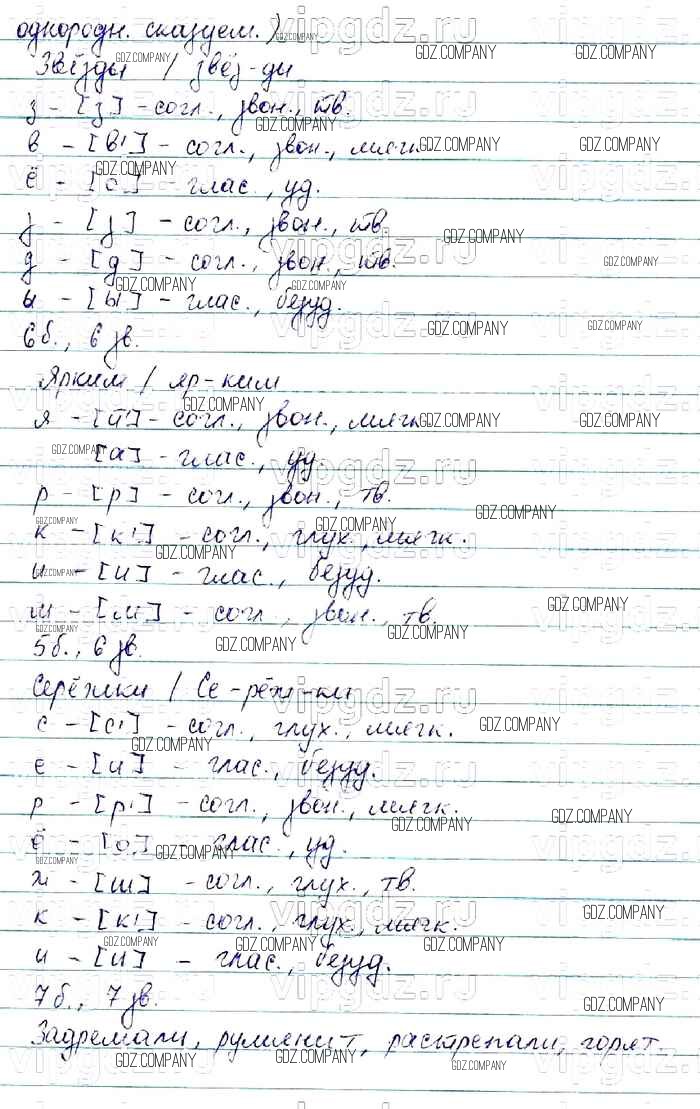 однородн. сказуем.)
Звёзды / звёз-ды
з - [з] - согл., звон., тв.
в - [в'] - согл., звон., мягк.
ё - [о] - глас., уд.
з - [з] - согл., звон., тв.
д - [д] - согл., звон., тв.
ы - [ы] - глас., безуд.
6 б., 6 зв.
Ярким / яр-ким
я - [й'] - согл., звон., мягк.
[а] - глас., уд.
р - [р] - согл., звон., тв.
к - [к'] - согл., глух., мягк.
и - [и] - глас., безуд.
м - [м] - согл., звон., тв.
5 б., 6 зв.
Серёжки / Се-рёж-ки
с - [с'] - согл., глух., мягк.
е - [и] - глас., безуд.
р - [р'] - согл., звон., мягк.
ё - [о] - глас., уд.
ж - [ш] - согл., глух., тв.
к - [к'] - согл., глух., мягк.
и - [и] - глас., безуд.
7 б., 7 зв.
Задремали, румянит, растрепали, горят.
vipgdz.ru
GDZ.COMPANY